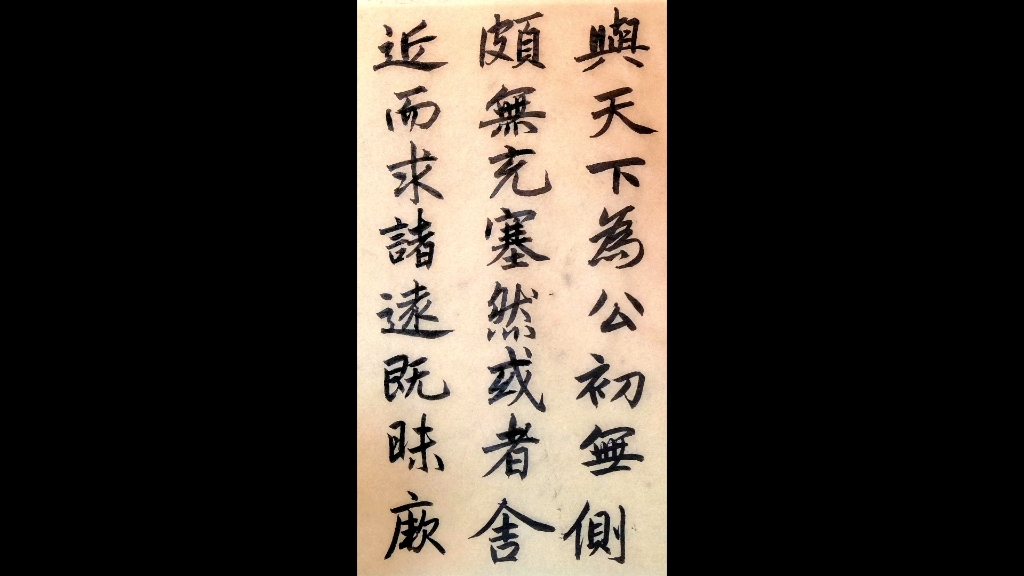 與天下為公初無側
頗無充塞然或者舍
近而求諸遠既昧厥